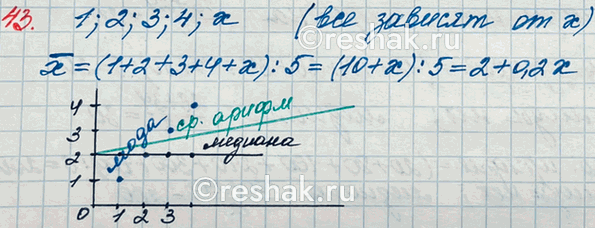 43. 1; 2; 3; 4; x (все зависят от x)
x̄ = (1+2+3+4+x) : 5 = (10+x) : 5 = 2+0,2x
4
3
2
1
0 1 2 3
мода
ср. арифм
медиана
©reshak.ru